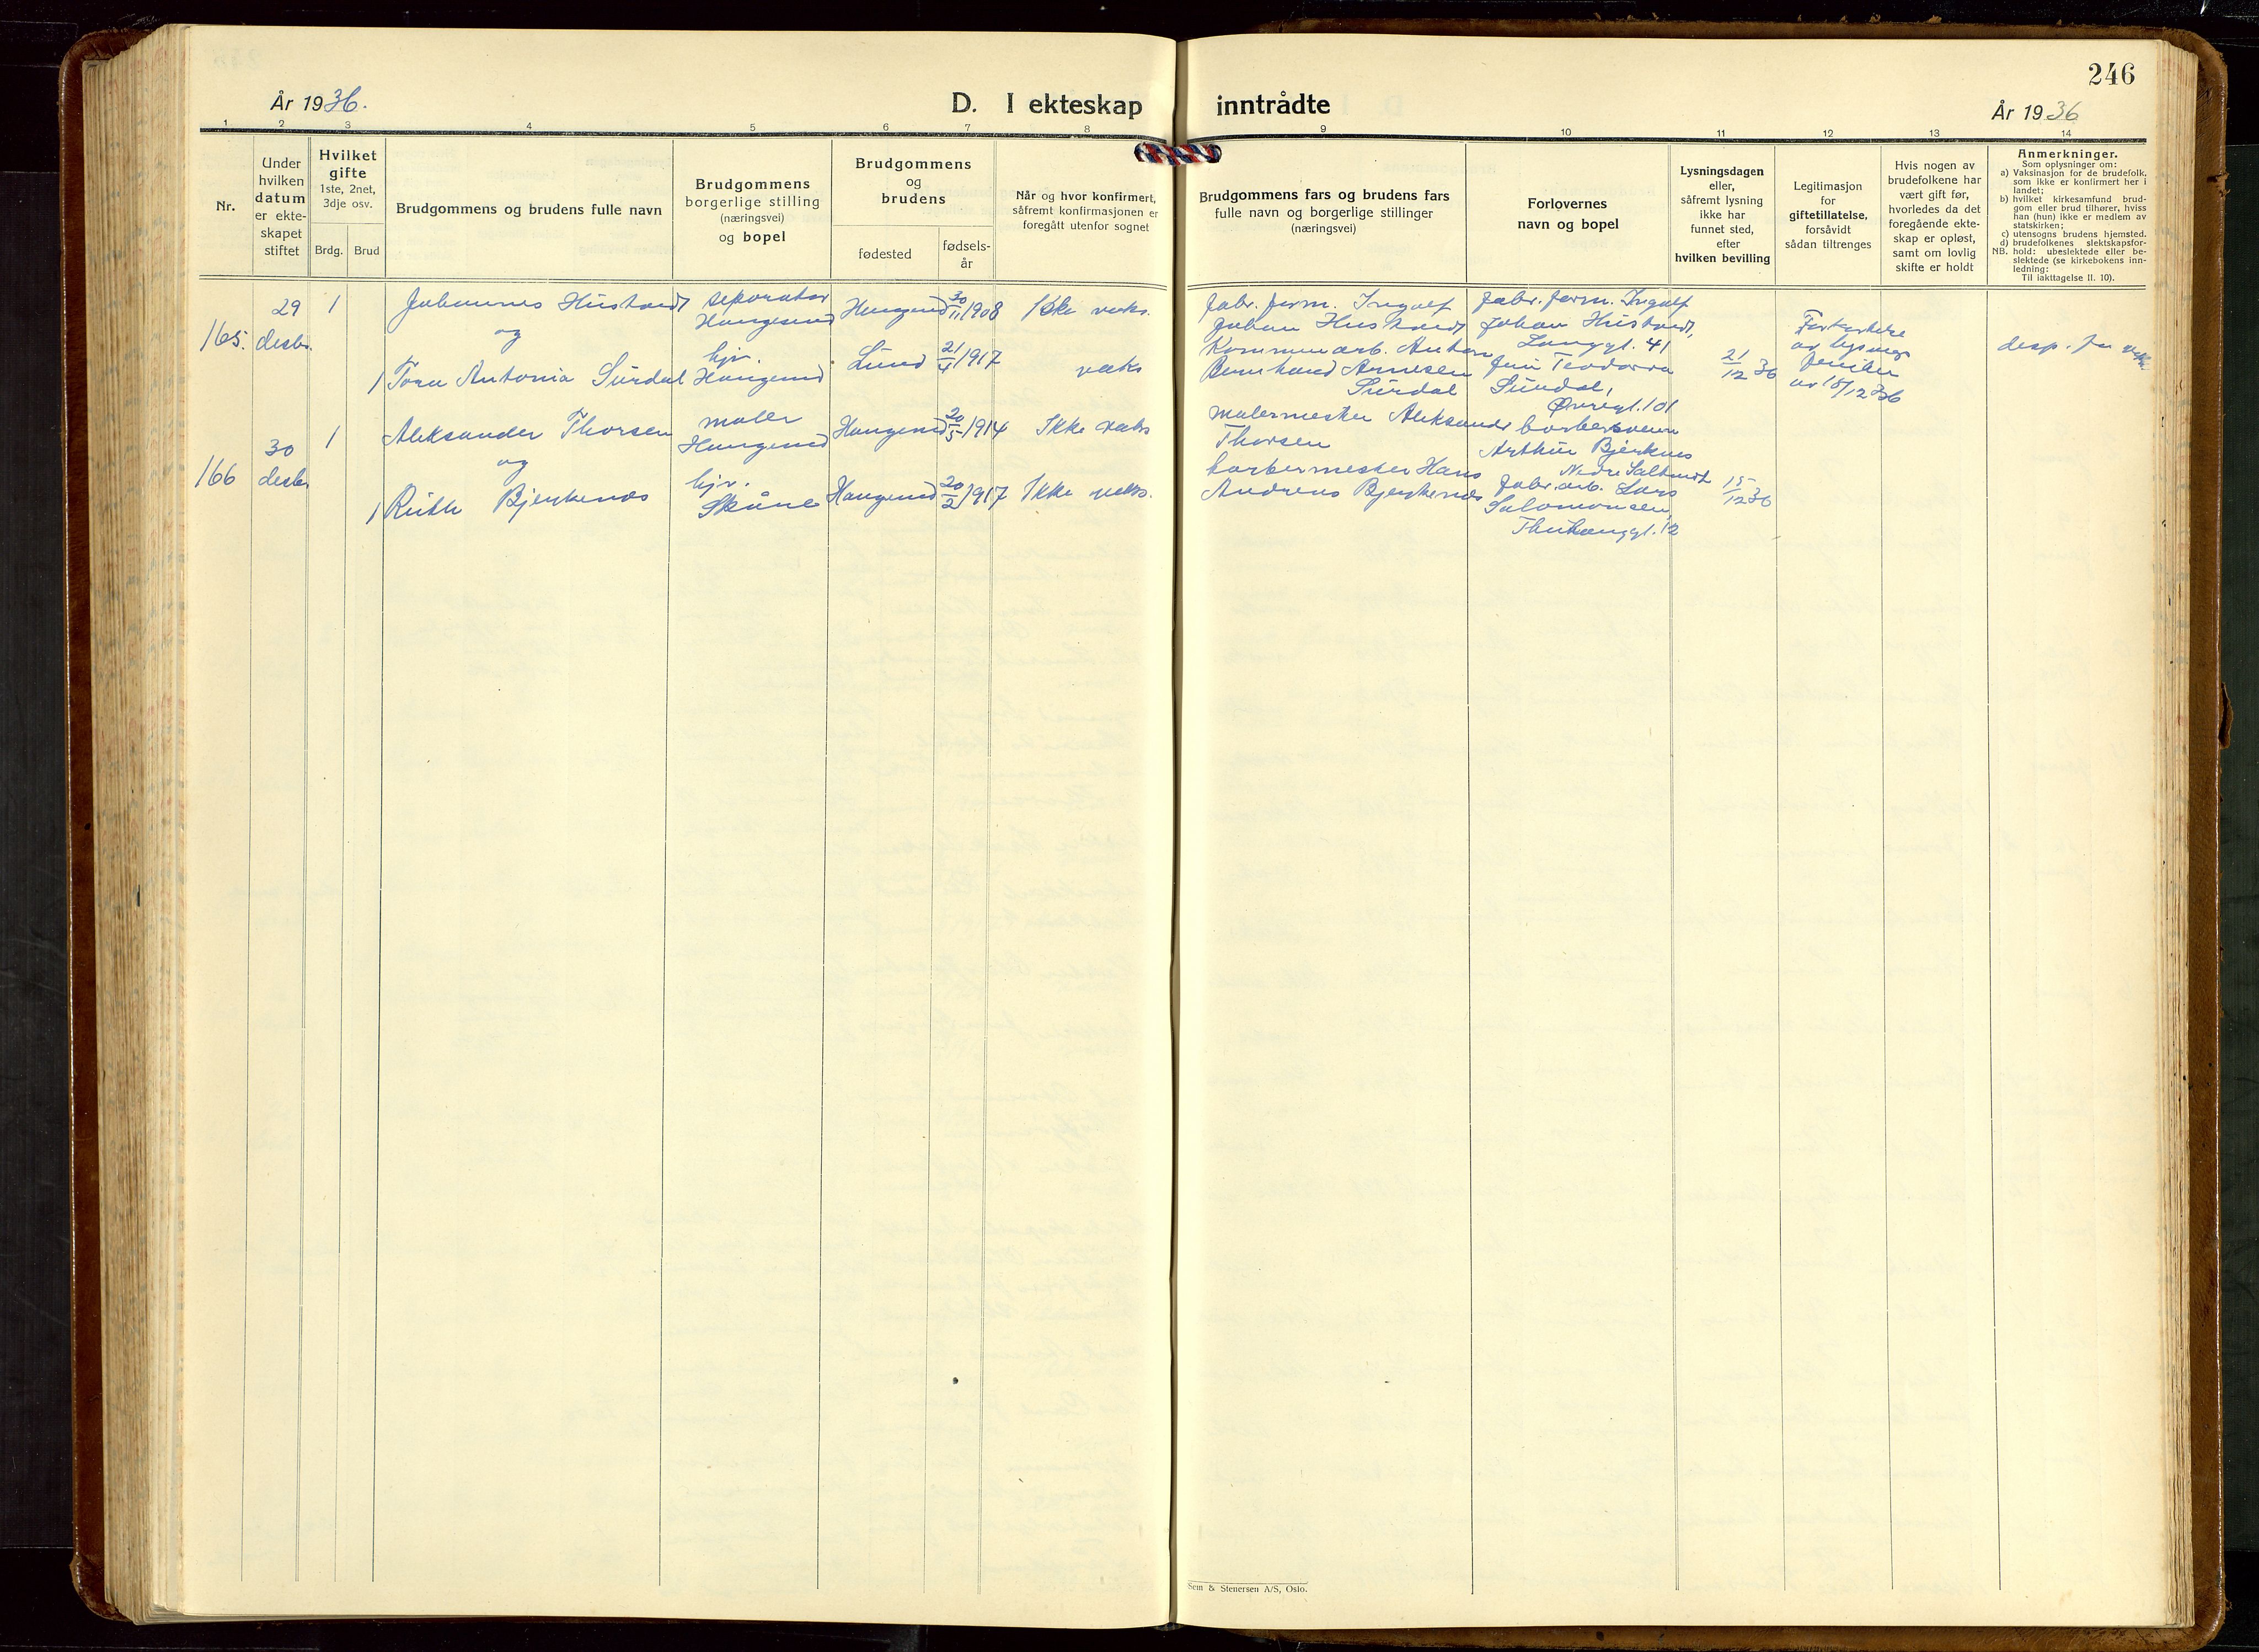 246
År 1936.
D. I ekteskap inntrådte
År 1936
1 2 3 4 5 6 7 8 9 10 11 12 13 14
Nr.
Under
hvilken
datum
er ekte-
skapet
stiftet
Hvilket
gifte
1ste, 2net,
3dje osv.
Brdg. Brud
Brudgommens og brudens fulle navn
Brudgommens
borgerlige stilling
(næringsvei)
og bopel
Brudgommens
og
brudens
fødested
fødsels-
år
Når og hvor konfirmert,
såfremt konfirmasjonen er
foregått utenfor sognet
Brudgommens fars og brudens fars
fulle navn og borgerlige stillinger
(næringsvei)
Forlovernes
navn og bopel
Lysningsdagen
eller,
såfremt lysning
ikke har
funnet sted,
efter
hvilken bevilling
Legitimasjon
for
giftetillatelse,
forsåvidt
sådan tiltrenges
Hvis nogen av
brudefolkene har
vært gift før,
hvorledes da det
foregående ekte-
skap er opløst,
samt om lovlig
skifte er holdt
Anmerkninger.
Som oplysninger om:
a) Vaksinasjon for de brudefolk.
som ikke er konfirmert her i
landet;
b) hvilket kirkesamfund brud-
gom eller brud tilhører, hviss
han (hun) ikke er medlem av
statskirken;
c) utensogns brudens hjemsted.
d) brudefolkenes slektskapsfor-
NB. hold: ubeslektede eller be-
slektede (se kirkebokens inn-
ledning:
Til iakttagelse II. 10).
165.
29
desbr.
1
Johannes Hustvedt
og
1 Tora Antonia Surdal
reparatør
Haugesund
hjv.
Haugesund
Haugesund 30/11 1908
Lund 21/4 1917
Ikke vaks.
vaks
Fabr. form. Ingolf
Johan Hustvedt
Kommunearb. Anton
Bernhard Arnesen
Surdal
Fabr. form. Ingolf
Johan Hustvedt,
Langgt. 41
Teodora
Surdal,
Øvregt. 101
21/12 36
av lysnings
av 18/12 36
desp. fra
166
30
desbr
1
Aleksander Thorsen
og
1 Ruth Bjerkenes
maler
Haugesund
hjv.
Skåne
Haugesund 20/5 1914
Haugesund 20/2 1917
Ikke vaks
Ikke vaks.
Malermester Aleksander
Thorsen
barbermester Hans
Andreas Bjerkenes
barbersvenn
Arthur Bjerknes
Fabr. arb. Lars
Salomonsen,
15/12 36
Sem & Stenersen A/S, Oslo.